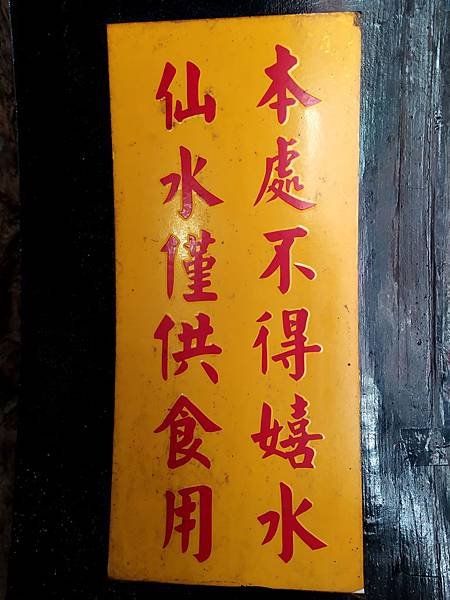 本處不得嬉水
仙水僅供食用